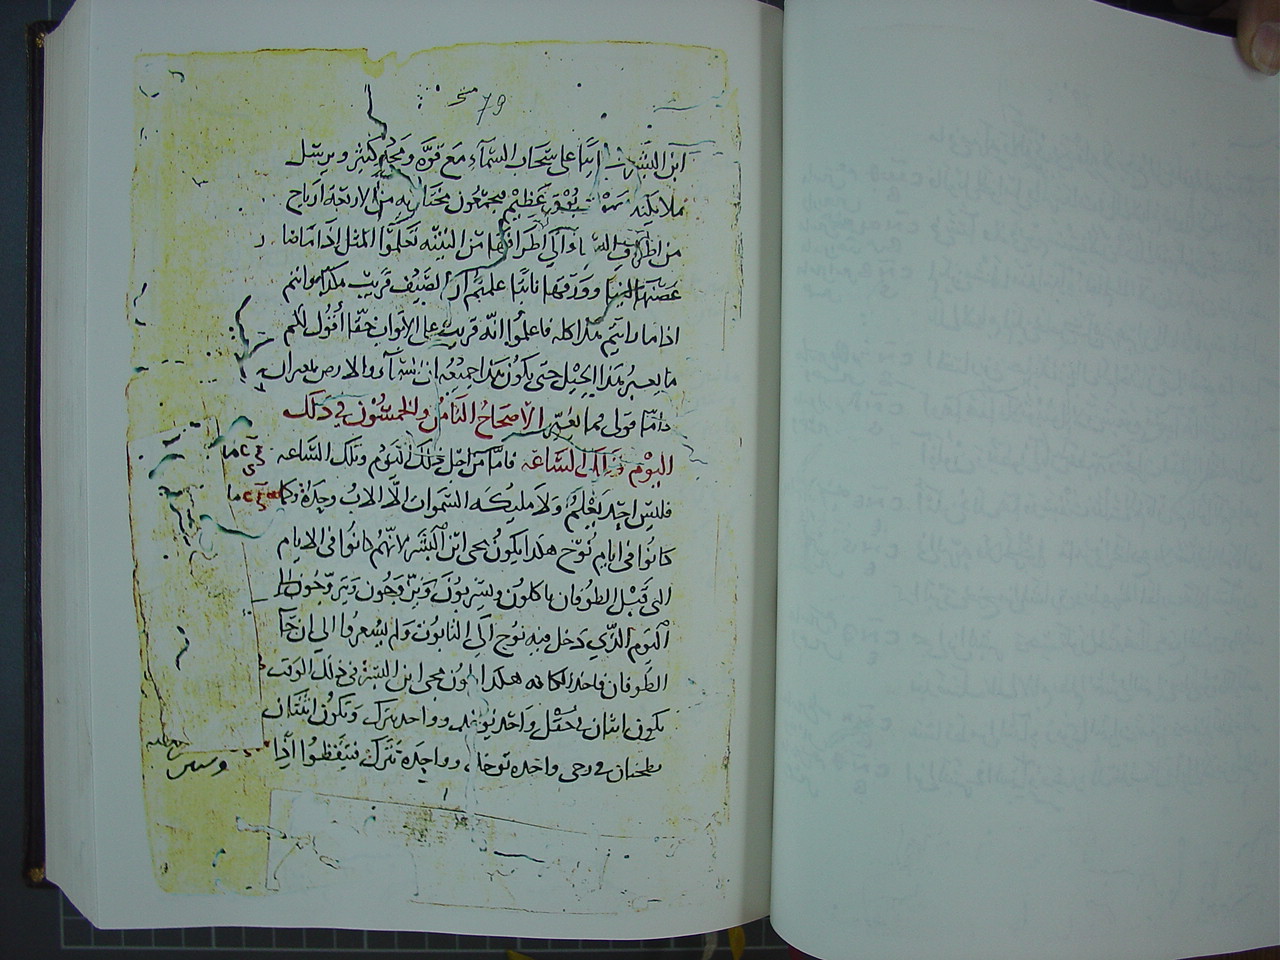 79
ابن البشر اتيا على سحاب السماء مع قوة ومجد كثير ويرسل
ملايكته بوق عظيم مجتمعون مختاريه من الاربعة ارياح
من اطراف السما والى اطرافها من التينه تعلموا المثل اذا ما
غصنها لينا وورقها نابتا علمتم ان الصيف قريب هكذا وانتم
اذا ما رايتم هذا كله فاعلموا انه قريب على الابواب حقا اقول لكم
ما يعبر هذا الجيل حتى يكون هذا جميعه ان السماء والارض يعبران
واما قولى فما يعبر الاصحاح الثامن والخمسون فى ذلك
اليوم وتلك الساعه فاما من اجل ذلك اليوم وتلك الساعه
فليس احد يعلم ولا مليكه السموات الا الاب وحده وكما
كانوا فى ايام نوح هكذا يكون مجى ابن البشر لانهم كانوا فى الايام
التى قبل الطوفان ياكلون ويشربون ويزوجون ويتزوجون الى
اليوم الذي دخل فيه نوح الى التابوت ولم يشعروا الي ان جا
الطوفان فاخذ الكافه هكذا يكون مجى ابن البشر فى ذلك الوقت
يكون اثنان فى حقل واحد يوخذ وواحد يترك وتكون اثنتان
يطحنان فى رحى واحده توخذ وواحده تترك فتيقظوا اذا